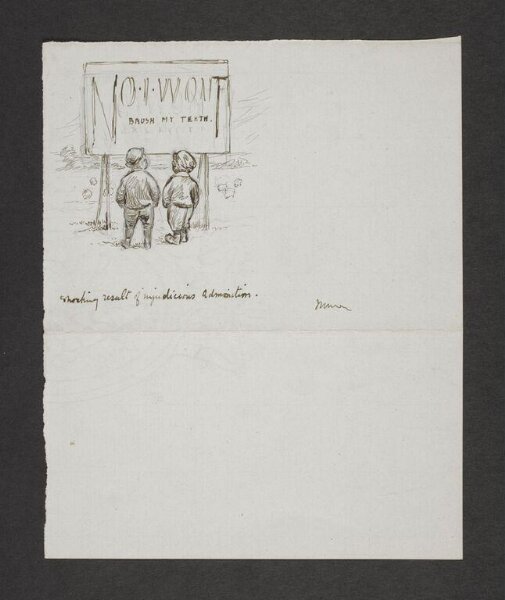 NO·I·WONT
BRUSH MY TEETH.
Shocking result of injudicious admonition.